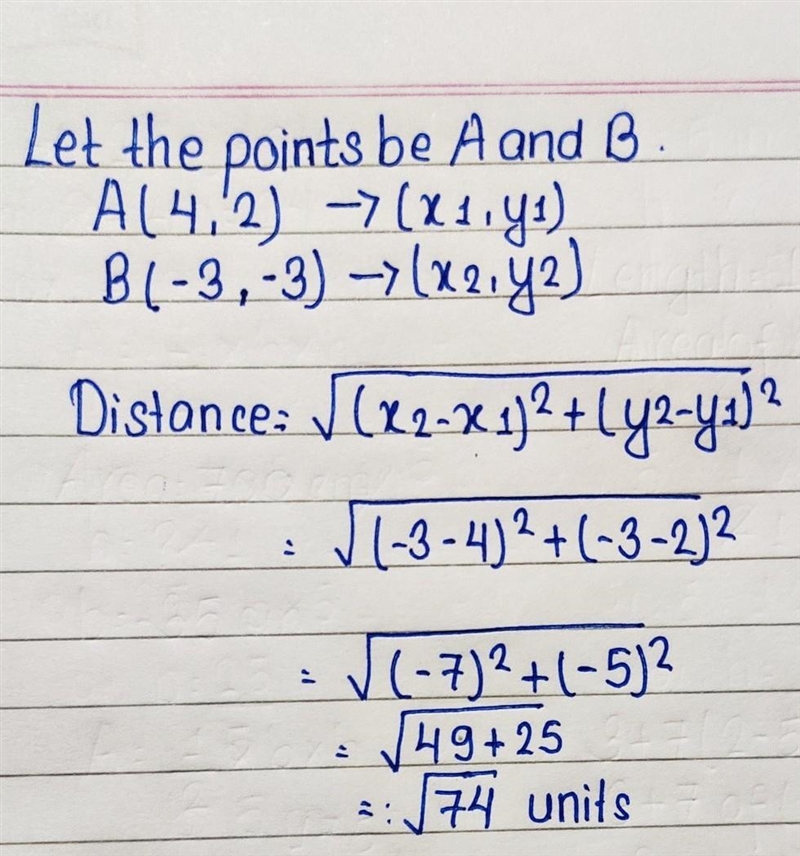 Let the points be A and B.
A(4,2) → (x1,y1)
B(-3,-3) → (x2,y2)
Distance= √(x2-x1)²+(y2-y1)²
= √(-3-4)²+(-3-2)²
= √(-7)²+(-5)²
= √49+25
=: √74 units